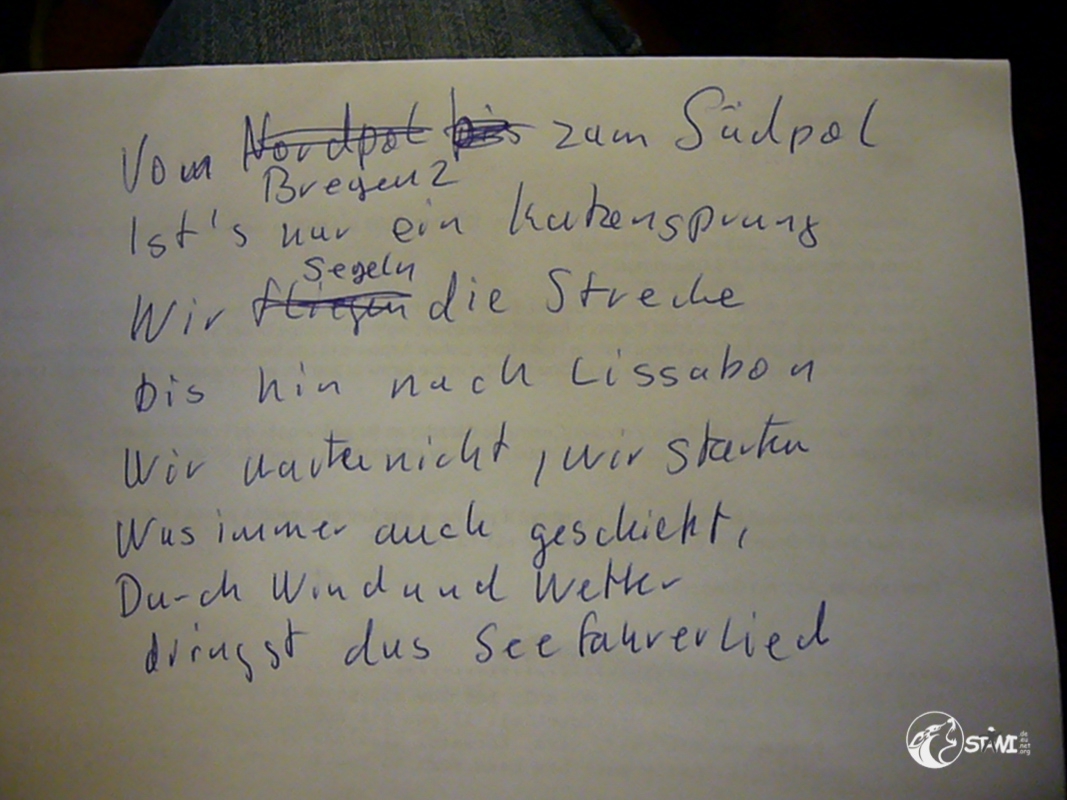 Vom Nordpol bis zum Südpol
Bregenz
Ist's nur ein Katzensprung
Segeln
Wir fliegen die Strecke
bis hin nach Lissabon
Wir warten nicht, wir starten
Was immer auch geschieht,
Durch Wind und Wetter
dringst das Seefahrerlied
STÁNI
de
eu
net
org